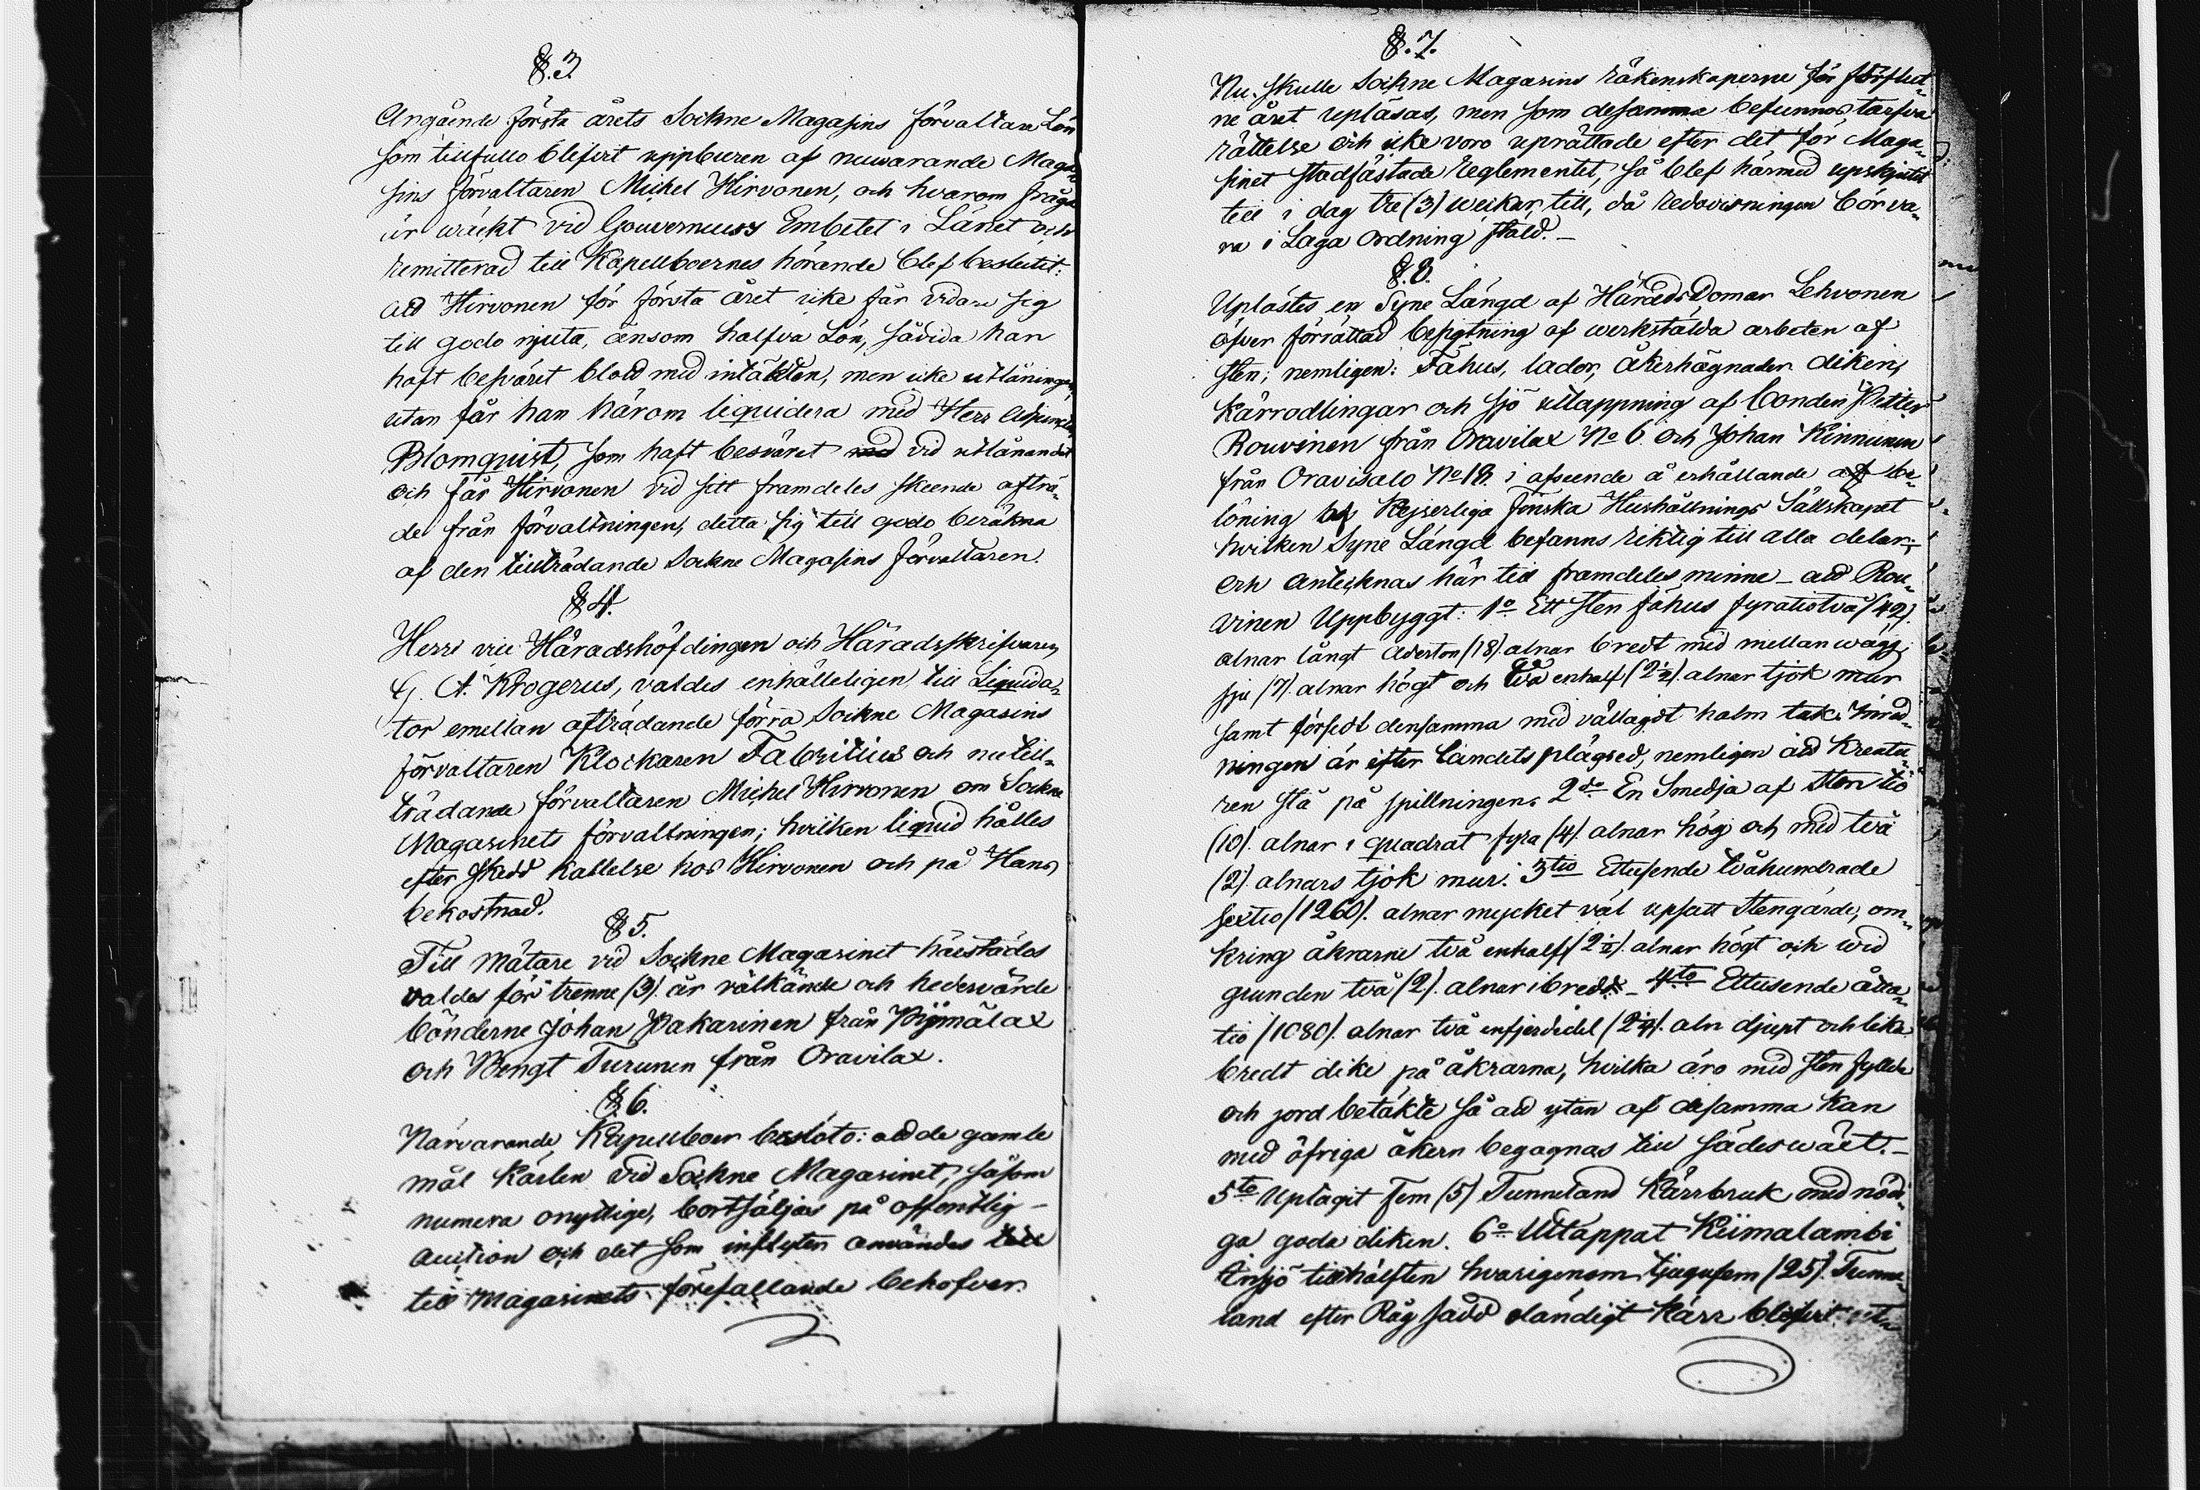 §.3.
Angående första årets Sockne Magasins förvaltare Lön
som tillfullo blifvit uppburen af nuvarande Maga-
sins förvaltaren Michel Hirvonen, och hvarom fråga
är wäckt vid Gouverneurs Embetet i Länet och
remitterad till Kapellboernes hörande blef beslutit:
att Hirvonen för första året icke får vidare sig
till godo njuta, än som halfva Lön, såvida han
haft besväret blott med intäkten, men icke utlåningen,
utan får han härom liquidera med Herr
Blomquist, som haft besväret med vid utlånandet
och får Hirvonen vid sitt framdeles skeende afträ-
de från förvaltningen, detta sig till godo beräkna
af den tillträdande Sockne Magasins förvaltaren.
§ 4.
Herr vice Häradshöfdingen och Häradsskrifvaren
G. A. Krogerus, valdes enhälleligen till Liquida-
tor emellan afträdande förra Sockne Magasins
förvaltaren Klockaren Fabritius och nu till-
trädande förvaltaren Michel Hirvonen om Sockne
Magasinets förvaltningen; hvilken liquid hålles
efter skedd kallelse hos Hirvonen och på Hans
bekostnad.
§ 5.
Till Mätare vid Sockne Magasinet härstädes
valdes för trenne (3). år välkände och hedervärde
bönderne Johan Pakarinen från Pyymälax
och Bengt Turunen från Oravilax.
§ 6.
Närvarande Kapellboer beslöto: att de gamle
mål kärlen vid Sockne Magasinet, såsom
numera onyttige, bortsäljas på offentlig
auction och det som inflyter användes till
till Magasinets förefallande behofver.
§. 7.
Nu skulle Sockne Magasins räkenskaperne för förflut-
ne året upläsas, men som desamma befunnos tarfva
rättelse och icke voro uprättade efter det för Maga-
sinet stadfästade Reglementet, så blef härmed upskjutit
till i dag tre (3) weckor till, då redovisningen bör va-
ra i Laga Ordning stäld.
§. 8.
Uplästes en Syne Längd af Härads Domar Lehvonen
öfver förrättad besigtning af werkstälda arbeten af
sten; nemligen: Fähus, lador, åkerhägnader diken,
Kärrodlingar och sjö uttappning af bonden Petter
Rouvinen från Oravilax No 6 och Johan Kinnunen
från Oravisalo No 18. i afseende å erhållande af be-
löning af Kejserliga finska Hushållnings Sällskapet
hvilken Syne Längd befanns riktig till alla delar;
och antecknas här till framdeles minne – att Rou-
vinen Uppbyggt: 1o Ett sten fähus fyratiotvå (42).
alnar långt Aderton (18) alnar bredt med mellan wägg,
sju (7). alnar högt och två enhalf (2½) alnar tjok mur
samt försedt densamma med vällagdt halm tak. Inred-
ningen är efter landets plägsed, nemligen att Kreatu-
ren stå på spillningen. 2do En Smedja af Sten tio
(10). alnar i quadrat fyra (4). alnar hög och med två
(2). alnars tjok mur. 3tio Ettusende tvåhundrade
sextio (1260). alnar mycket väl upsatt Stengärde, om-
kring åkrarne två enhalff (2½). alnar högt och wid
grunden två (2). alnar i bredd – 4to Ettusende åtta-
tio (1080). alnar två enfjerdedel (2¼). aln djupt och lika
bredt dike på åkrarna, hvilka äro med sten fyllde
och jord betäkte så att ytan af desamma kan
med öfriga åkern begagnas till sädeswäxt. –
5to Uptagit Fem (5) Tunneland Kärrbruk med nödi-
ga goda diken. 6o Uttappat Kiimalambi
Insjö till hälften hvarigenom tjugufem (25). Tunne-
land efter Råg sådd ständigt Kärr blifvit ut-